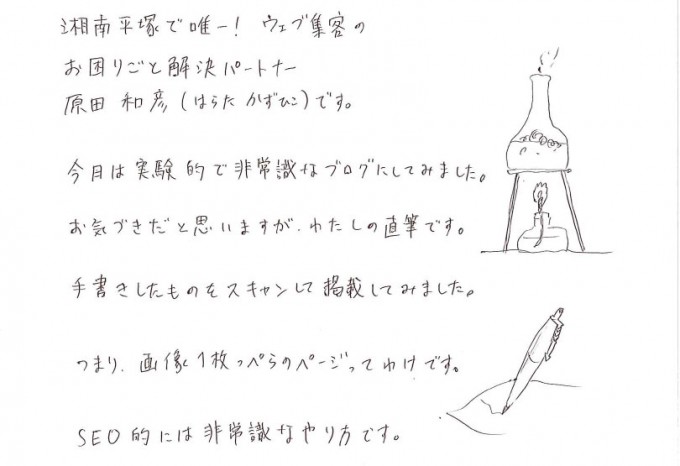 湘南平塚で唯一! ウェブ集客の
お困りごと解決パートナー
原田 和彦(はらた かずひこ)です。
今月は実験的で非常識なブログにしてみました。
お気づきだと思いますが、わたしの直筆です。
手書きしたものをスキャンして掲載してみました。
つまり、画像1枚っぺらのページってわけです。
SEO的には非常識なやり方です。